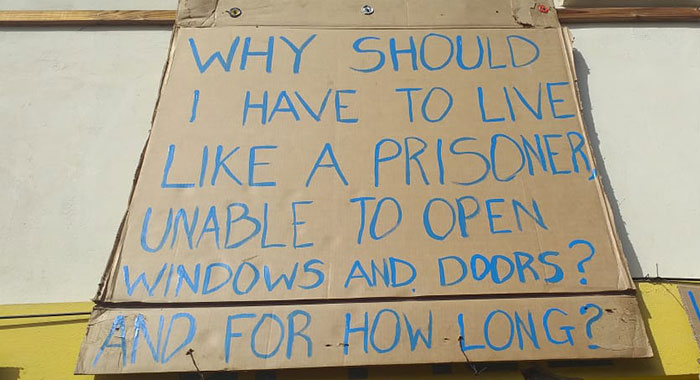 WHY SHOULD
I HAVE TO LIVE
LIKE A PRISONER,
UNABLE TO OPEN
WINDOWS AND DOORS?
AND FOR HOW LONG?